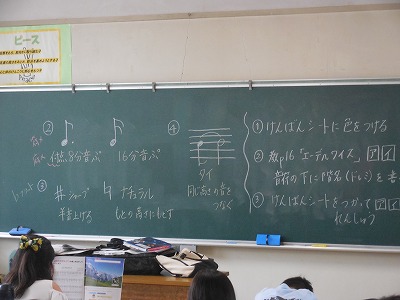 ピース
②
付点8分音ぷ
16分音ぷ
④
タイ
同じ高さの音を
つなぐ
③
♯ シャープ
半音上げる
♮ ナチュラル
もとの高さにもどす
① けんばんシートに色をつける
② 教p16「エーデルワイス」ア イ
音符の下に階名(ドレミ)を書
③ けんばんシートをつかって ア イ
れんしゅう